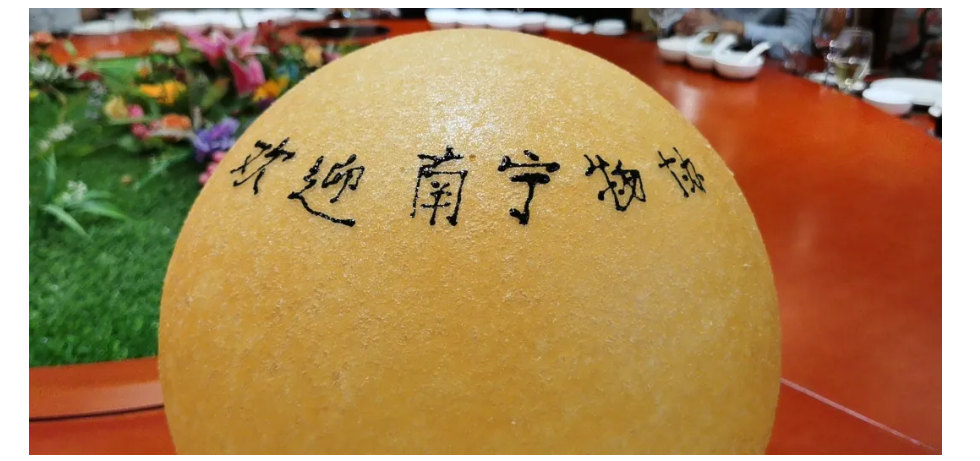 欢迎南宁物协